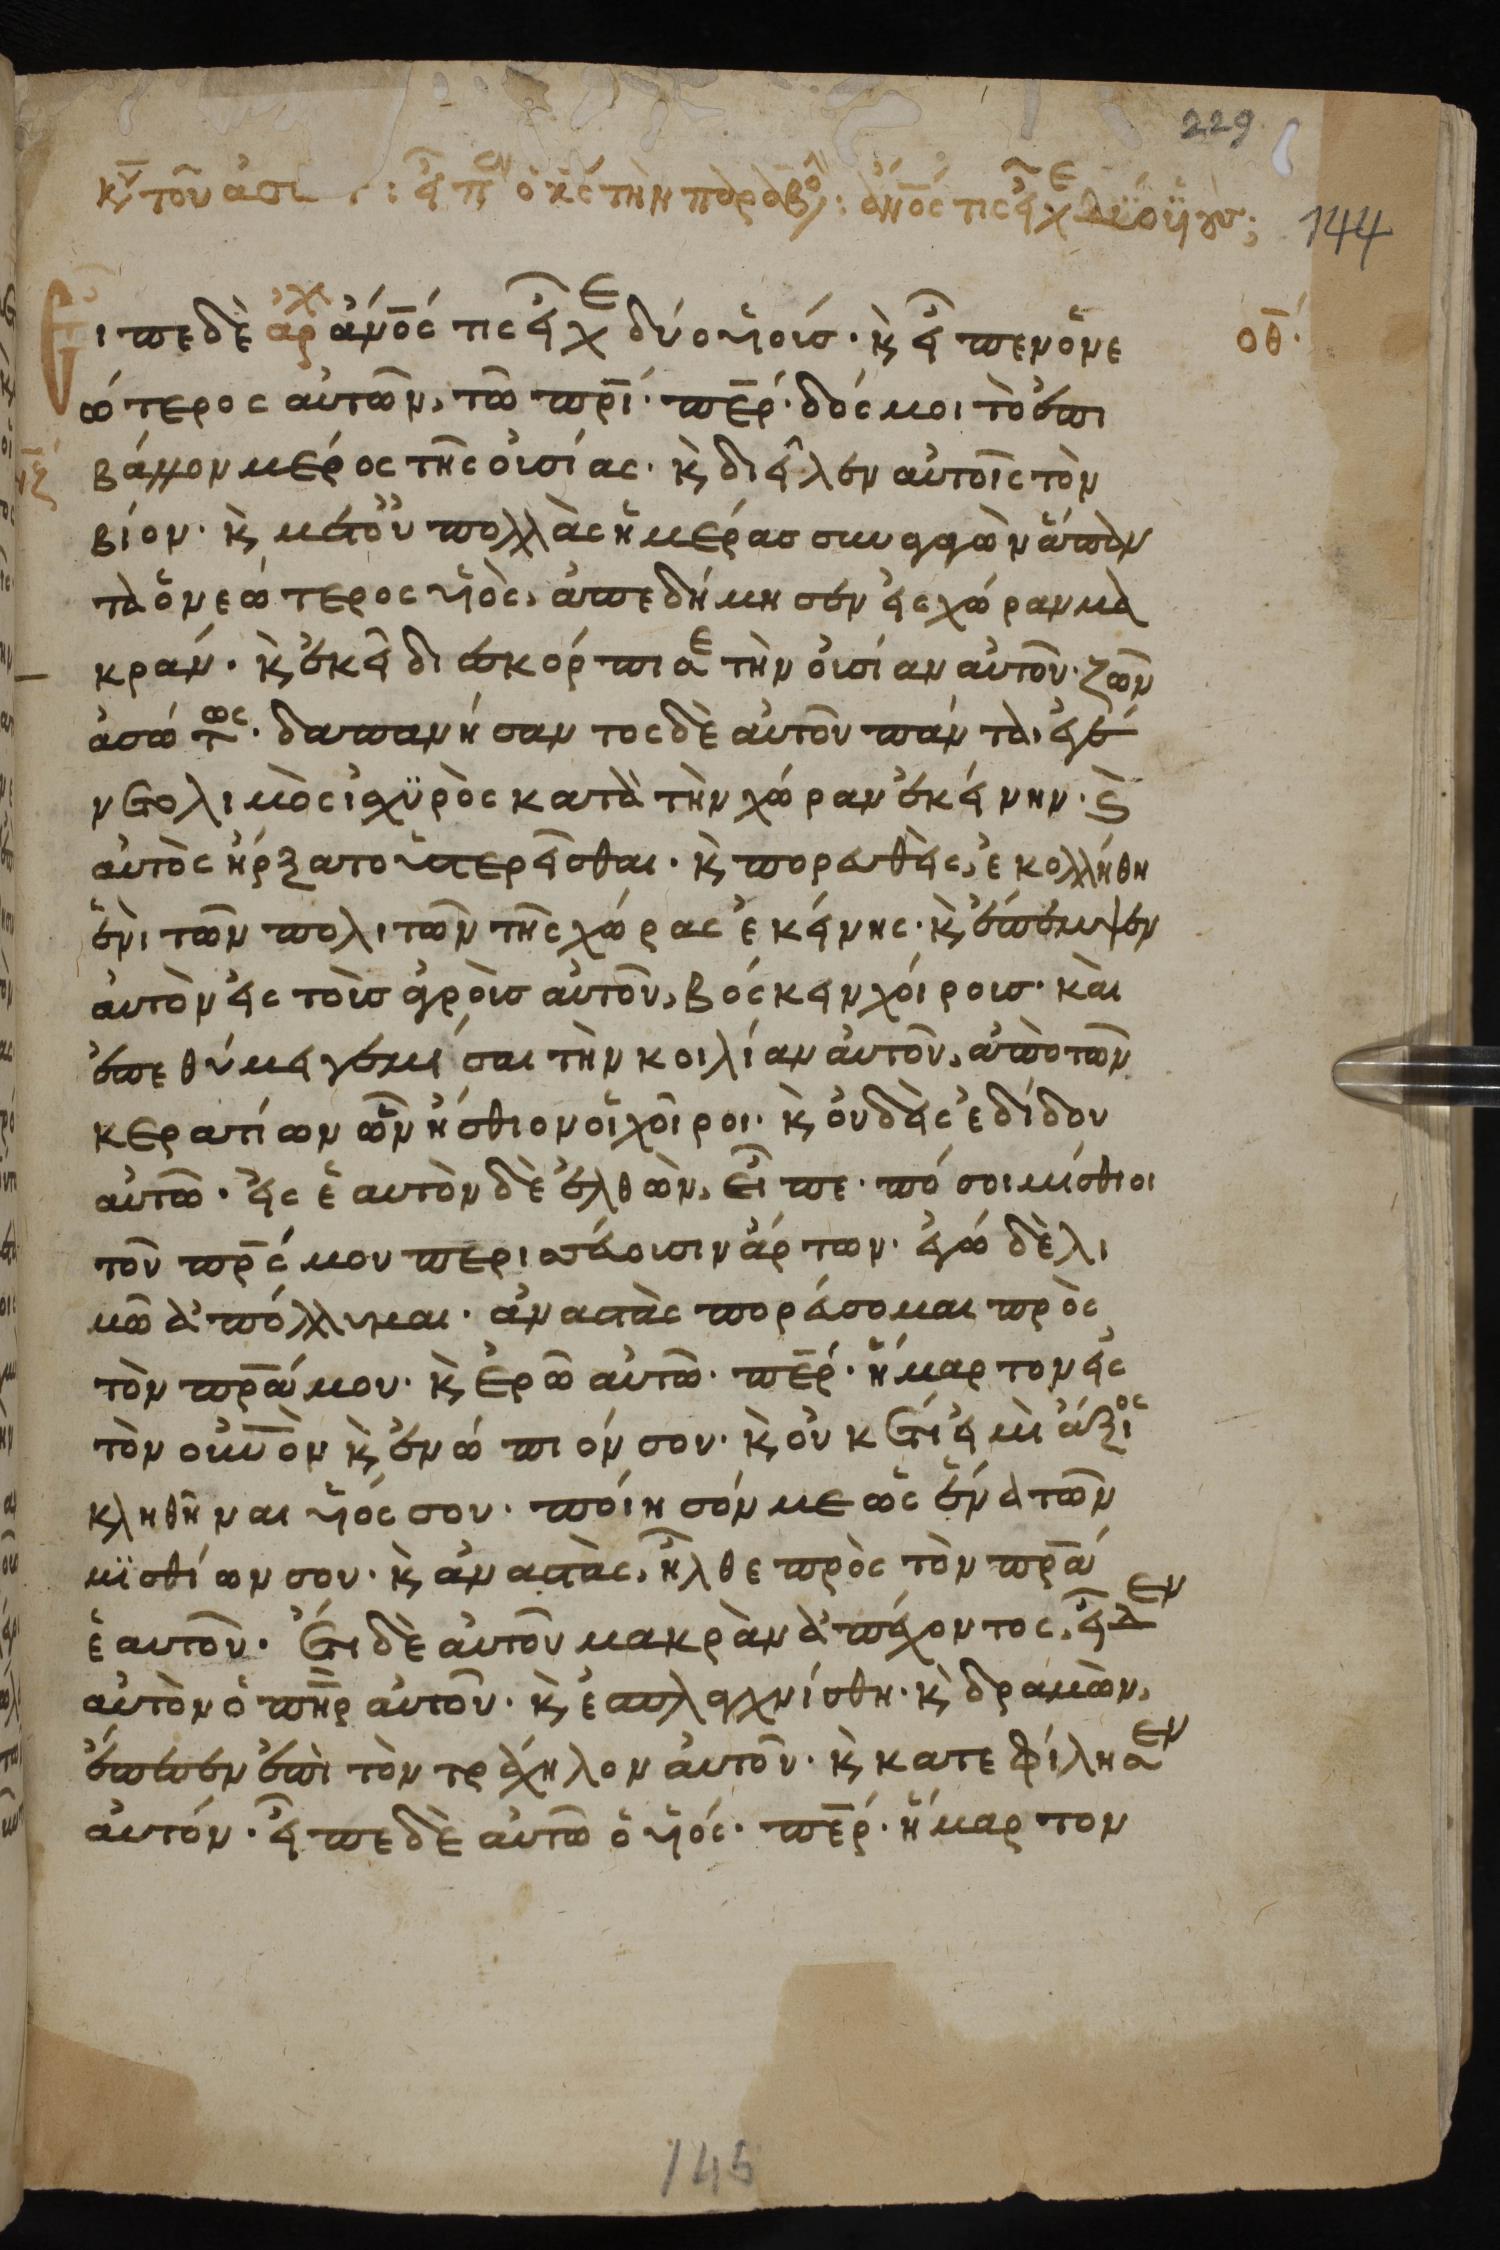 229
κυ τοῦ ἀσώ : εἶπεν ὁ κς τὴν παραβολ : ἀνος τις εἶχε δύο ὑιου ; 144
Ειπε δὲ αρχ ἀνος τις εἶχε δύο ὑιούς · κ εἶπεν ὁ νε οθ
ώτερος αὐτῶν, τῶ πρι · περ · δός μοι τὸ ἐπι
βάλλον μέρος τῆς οὐσίας · κ διεῖλεν αὐτοῖς τὸν
βίον · κ μετ οὐ πολλὰς ἡμέρας συναγαγὼν ἅπαν
τα ὁ νεώτερος ὑιὸς, ἀπεδήμησεν εἰς χώραν μα
κράν · κ ἐκεῖ διεσκόρπισε τὴν οὐσίαν αὐτοῦ · ζῶν
ἀσώτως · δαπανήσαντος δὲ αὐτοῦ πάντα, ἐγέ
νετο λιμὸς ἰσχϋρὸς κατὰ τὴν χώραν ἐκείνην · κ
αὐτὸς ἤρξατο ὑστερεῖσθαι · κ πορευθεὶς, ἐκολλήθη
ἑνὶ τῶν πολιτῶν τῆς χώρας ἐκείνης · κ ἔπεμψεν
αὐτὸν εἰς τοὺς ἀγροὺς αὐτοῦ, βόσκειν χοίρους · καὶ
ἐπεθύμει γεμίσαι τὴν κοιλίαν αὐτοῦ, ἀπὸ τῶν
κερατίων ὧν ἤσθιον οἱ χοῖροι · κ οὐδεὶς ἐδίδου
αὐτῶ · εἰς ἑαυτὸν δὲ ἐλθὼν, εἶπε · πόσοι μίσθιοι
τοῦ πρς μου περισσεύουσιν ἄρτων · ἐγώ δὲ λι
μῶ ἀπόλλυμαι · ἀναστὰς πορεύσομαι πρὸς
τὸν πρα μου · κ ἐρῶ αὐτῶ · περ · ἥμαρτον εἰς
τὸν οὐνὸν κ ἐνώπιόν σου · κ οὐκέτι εἰμὶ ἄξιος
κληθῆναι ὑιός σου · ποίησόν με ὡς ἕνα τῶν
μϊσθίων σου · κ ἀναστὰς, ἦλθε πρὸς τὸν πρα
ἑαυτοῦ · ἔτι δὲ αὐτοῦ μακρὰν ἀπέχοντος, εἶδεν
αὐτὸν ὁ πηρ αὐτοῦ · κ ἐσπλαγχνίσθη · κ δραμὼν,
ἐπέπεσεν ἐπὶ τὸν τράχηλον αὐτοῦ · κ κατεφίλησεν
αὐτόν · εἶπε δὲ αὐτῶ ὁ ὑιός · περ · ἥμαρτον
145